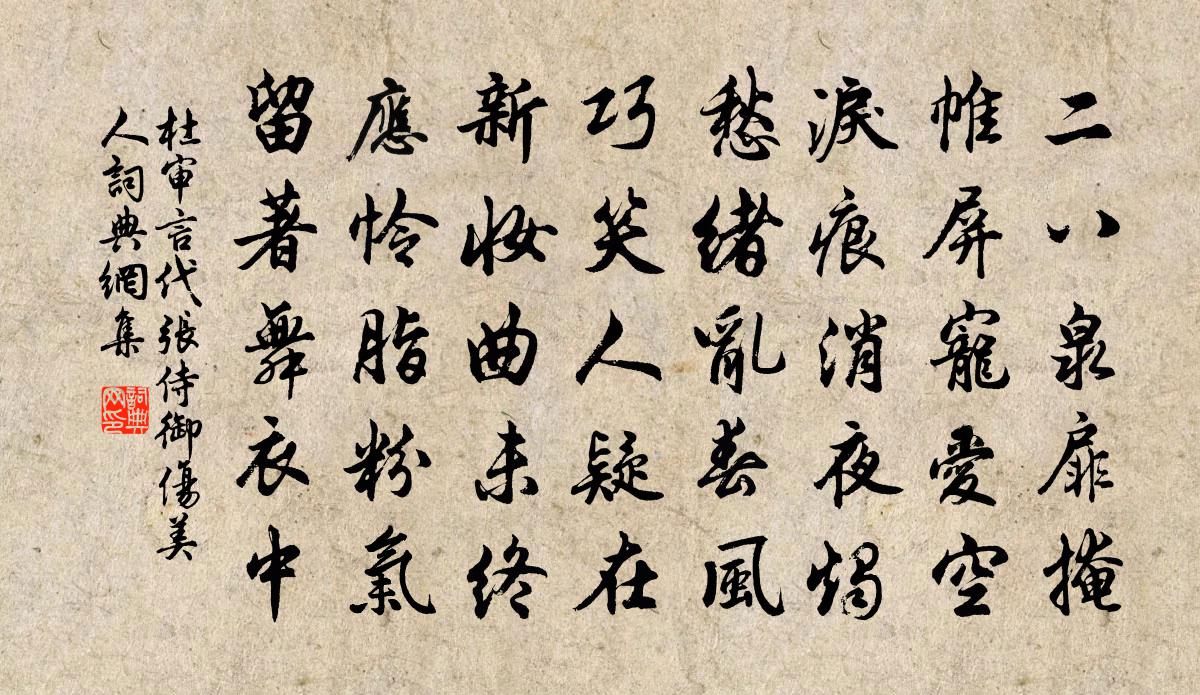 二八泉扉掩
帷屏寵愛空
淚痕消夜燭
愁緒亂春風
巧笑人疑在
新妝曲未終
應憐脂粉氣
留著舞衣中
杜審言代張侍御傷美
人詞典網集
詞典
网印